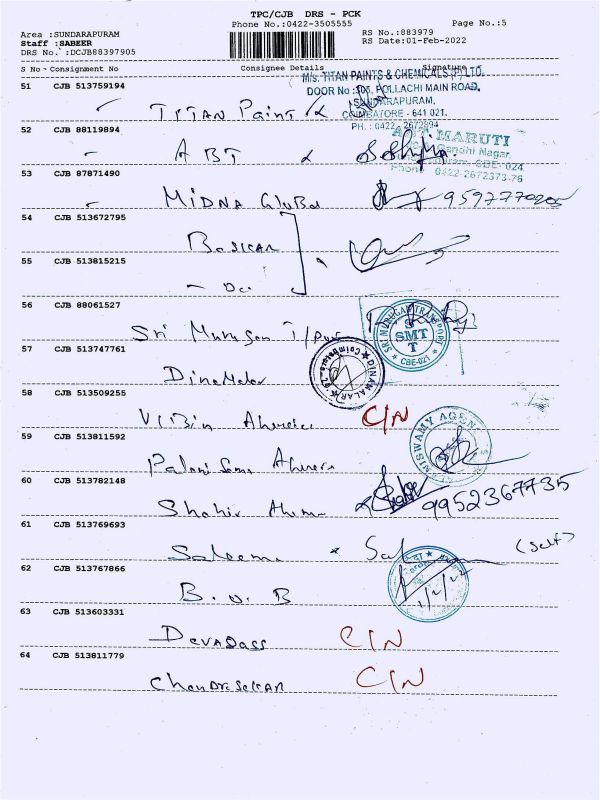 TPC/CJB DRS - PCK
Phone No.:0422-3505555
Page No.:5
Area :SUNDARAPURAM
Staff :SABEER
DRS No. :DCJB88397905
RS No.:883979
RS Date:01-Feb-2022
S No Consignment No Consignee Details Signature
M/s. TITAN PAINTS & CHEMICALS (P) LTD.
DOOR No :305, POLLACHI MAIN ROAD,
SUNDARAPURAM,
COIMBATORE - 641 021.
PH. : 0422 - 2672894
51 CJB 513759194
TITAN Paint
52 CJB 88119894
ABT
ABT MARUTI
Gandhi Nagar,
CBE-024
Phone 0422-2672373-76
53 CJB 87871490
MIDNA Global
54 CJB 513672795
BASKAR
55 CJB 513815215
- Do
56 CJB 88061527
Sri Murugan T/pur
SRI MURUGAN TRANSPORT
SMT
T
CBE-021
57 CJB 513747761
Dinamalar
DINAMALAR
Coimbatore
58 CJB 513509255
Vibin C/N
59 CJB 513811592
Palani Samy
PALANISWAMY AGENCIES
60 CJB 513782148
Shahir
9952367735
61 CJB 513769693
Saleem
(Self)
62 CJB 513767866
B.O.B
1/2/22
63 CJB 513603331
DEVADASS C/N
64 CJB 513811779
Chandrasekar C/N